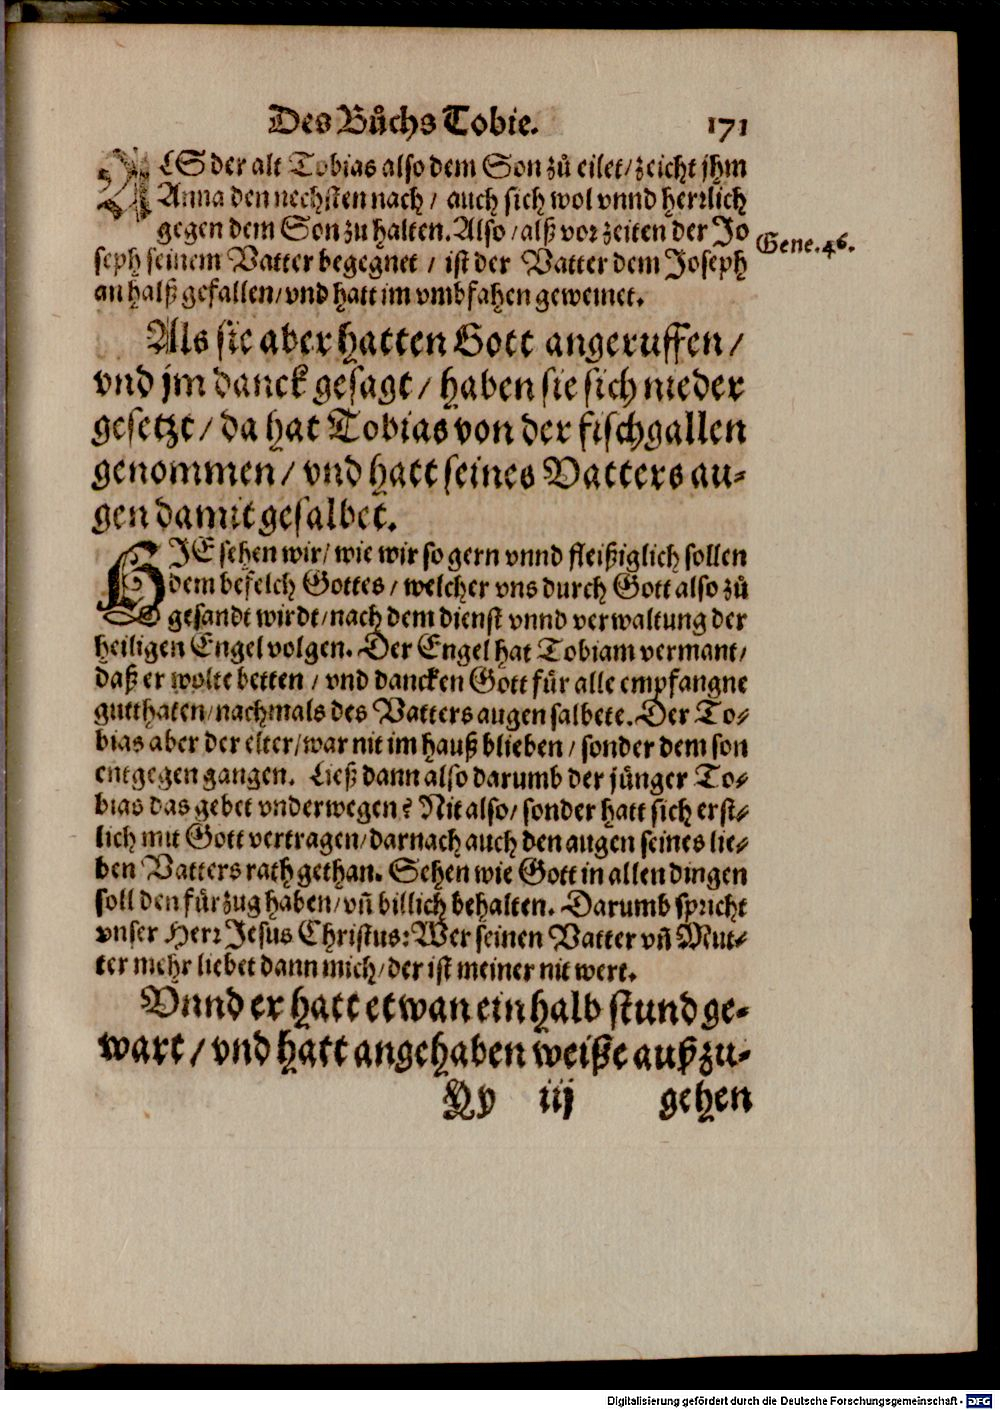 Des Bůchs Tobie. 171
ALS der alt Tobias also dem Son zů eilet/ zeicht jhm
Anna den nechsten nach/ auch sich wol vnnd herrlich
gegen dem Son zu halten. Also/ alß vor zeiten der Jo
Gene. 46.
seph seinem Vatter begegnet/ ist der Vatter dem Joseph
an halß gefallen/ vnd hatt im vmbfahen geweinet.
Als sie aber hatten Gott angeruffen/
vnd jm danck gesagt/ haben sie sich nieder
gesetzt/ da hat Tobias von der fischgallen
genommen/ vnd hatt seines Vatters au-
gen damit gesalbet.
HIE sehen wir/ wie wir so gern vnnd fleißiglich sollen
dem befelch Gottes/ welcher vns durch Gott also zů
gesandt wirdt/ nach dem dienst vnnd verwaltung der
heiligen Engel volgen. Der Engel hat Tobiam vermant/
daß er wolte betten/ vnd dancken Gott für alle empfangne
gutthaten/ nachmals des Vatters augen salbete. Der To-
bias aber der elter/ war nit im hauß blieben/ sonder dem son
entgegen gangen. Ließ dann also darumb der jünger To-
bias das gebet vnderwegen? Nit also/ sonder hatt sich erst-
lich mit Gott vertragen/ darnach auch den augen seines lie-
ben Vatters rath gethan. Sehen wie Gott in allen dingen
soll den fürzug haben/ vñ billich behalten. Darumb spricht
vnser Herr Jesus Christus: Wer seinen Vatter vñ Mut-
ter mehr liebet dann mich/ der ist meiner nit wert.
Vnnd er hatt etwan ein halb stund ge-
wart/ vnd hatt angehaben weiße auß zu-
Yy iij gehen
Digitalisierung gefördert durch die Deutsche Forschungsgemeinschaft - DFG